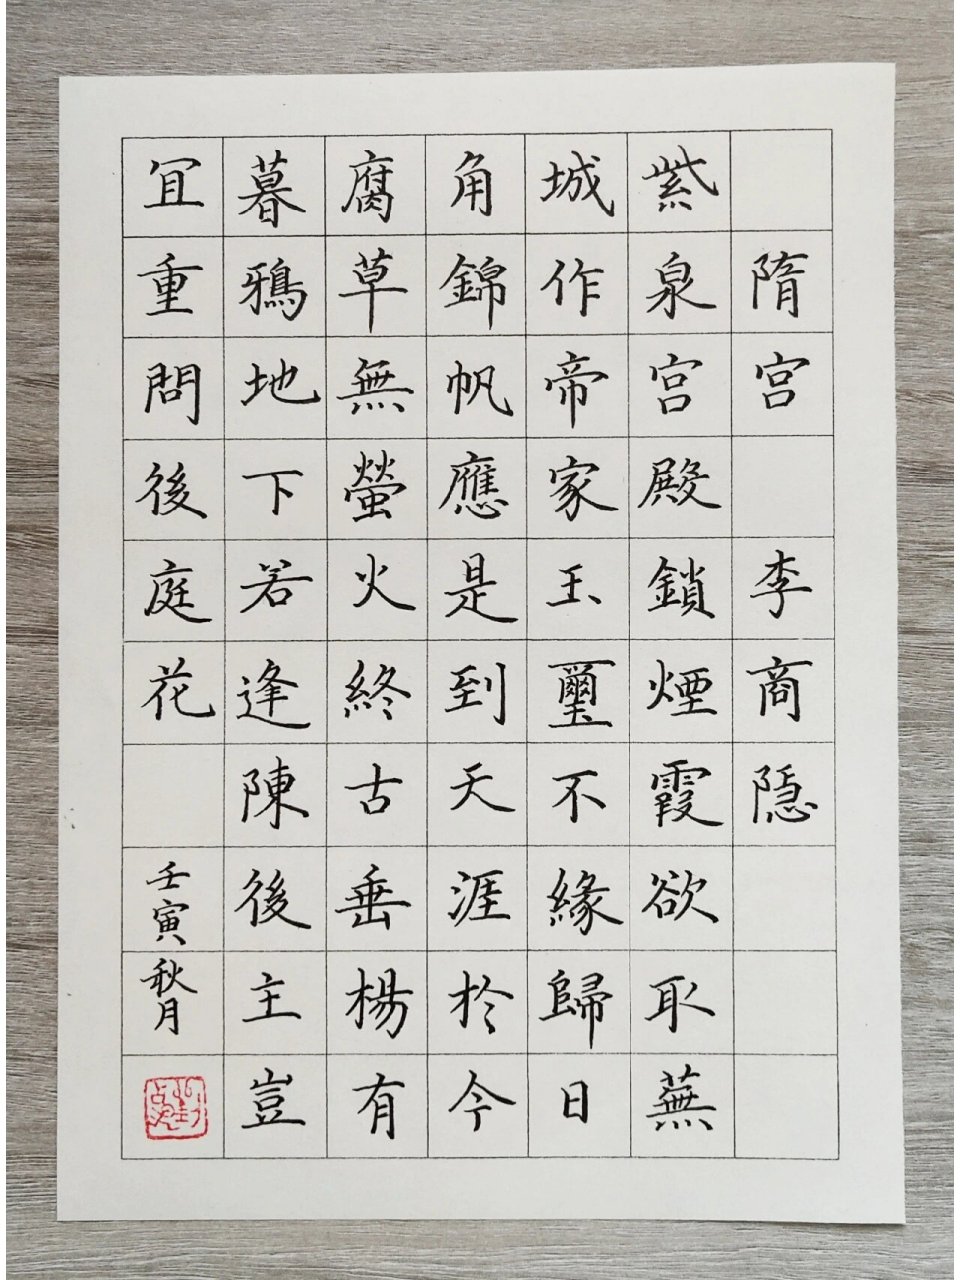 隋宮 李商隱
紫泉宮殿鎖煙霞欲取蕪
城作帝家玉璽不緣歸日
角錦帆應是到天涯於今
腐草無螢火終古垂楊有
暮鴉地下若逢陳後主豈
宜重問後庭花
壬寅秋月